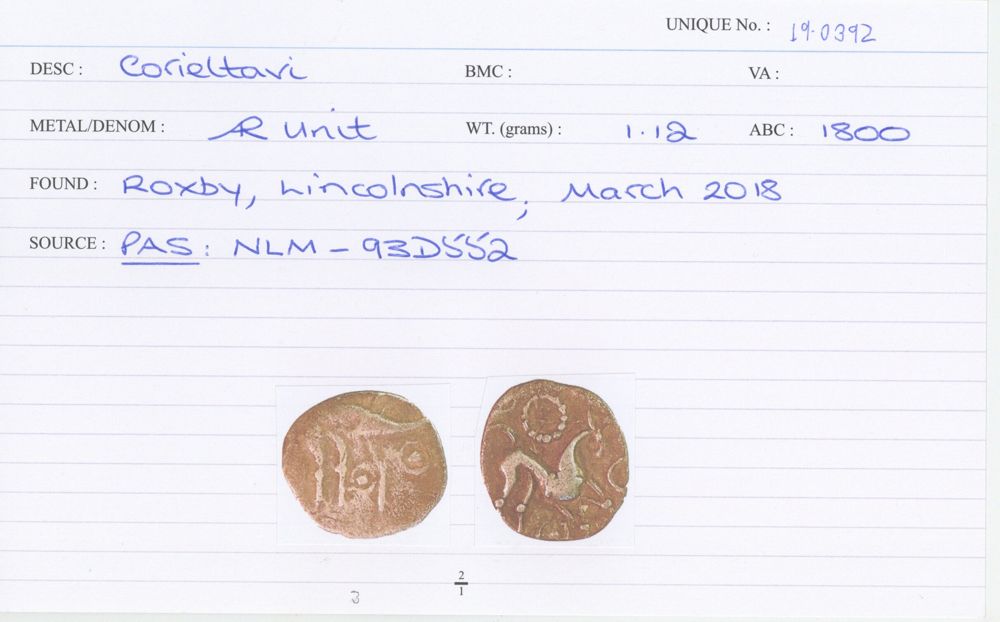 UNIQUE No. : 19.0392
DESC : Corieltavi BMC : VA :
METAL/DENOM : AR Unit WT. (grams) : 1.12 ABC : 1800
FOUND : Roxby, Lincolnshire, March 2018
SOURCE : PAS: NLM - 93D552
2/1
3